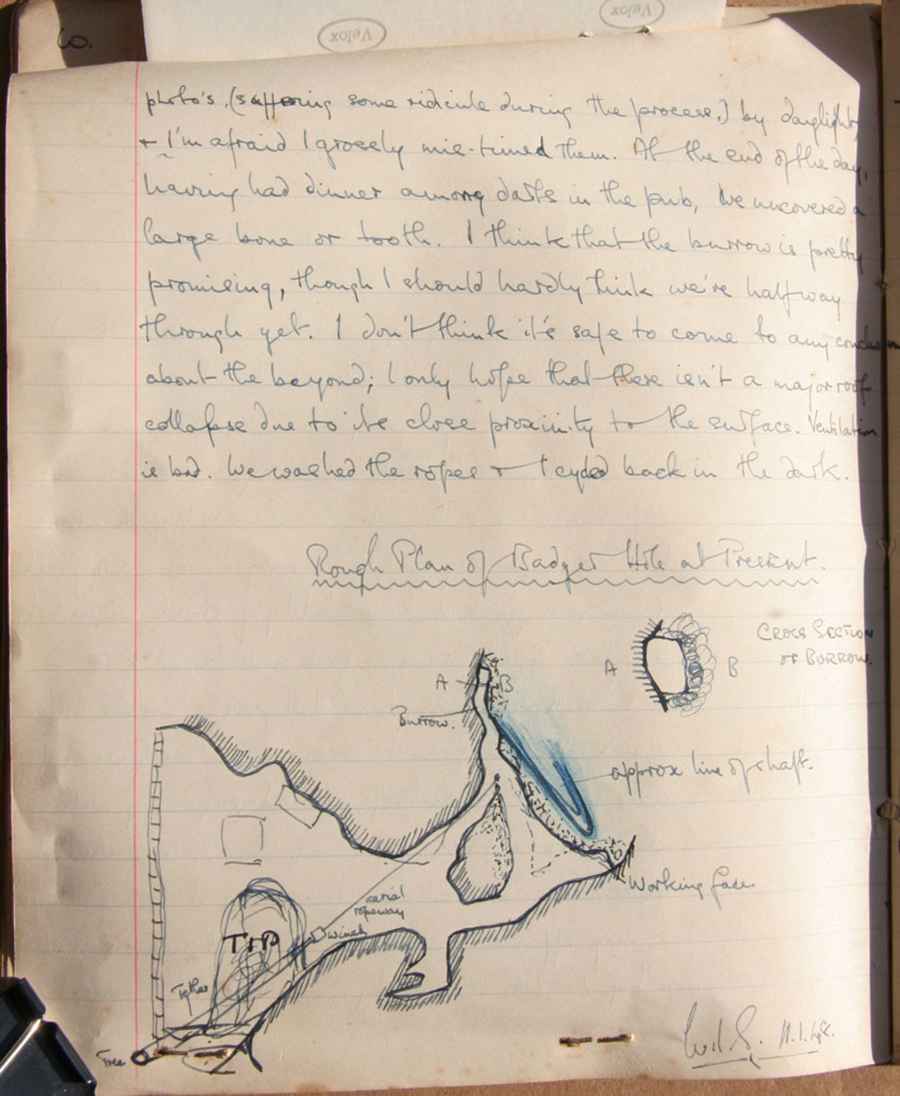 Co.
Velox
Velox
photo's. (suffering some ridicule during the process.) by daylight,
+ I'm afraid I grossly mis-timed them. At the end of the day,
having had dinner among darts in the pub, we uncovered a
large bone or tooth. I think that the burrow is pretty
promising, though I should hardly think we're halfway
through yet. I don't think it's safe to come to any conclusion
about the beyond; I only hope that there isn't a major roof
collapse due to its close proximity to the surface. Ventilation
is bad. We washed the ropes + I cycled back in the dark.
Rough Plan of Badger Hole at Present.
CROSS SECTION
OF BURROW.
A
B
A
B
Burrow.
approx line of shaft.
Working face.
aerial
ropeway
winch
TIP
Tree
11.1.48.